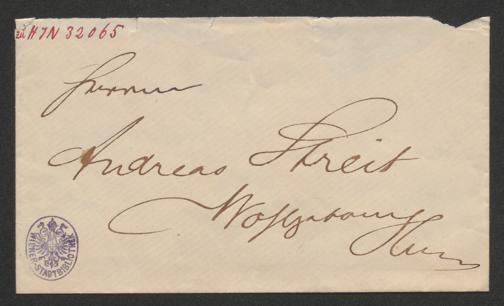 zu H.I.N 32065
Herrn
Andreas Streit
Wohlgeboren
Hier
WIENER-STADTBIBLIOTHEK